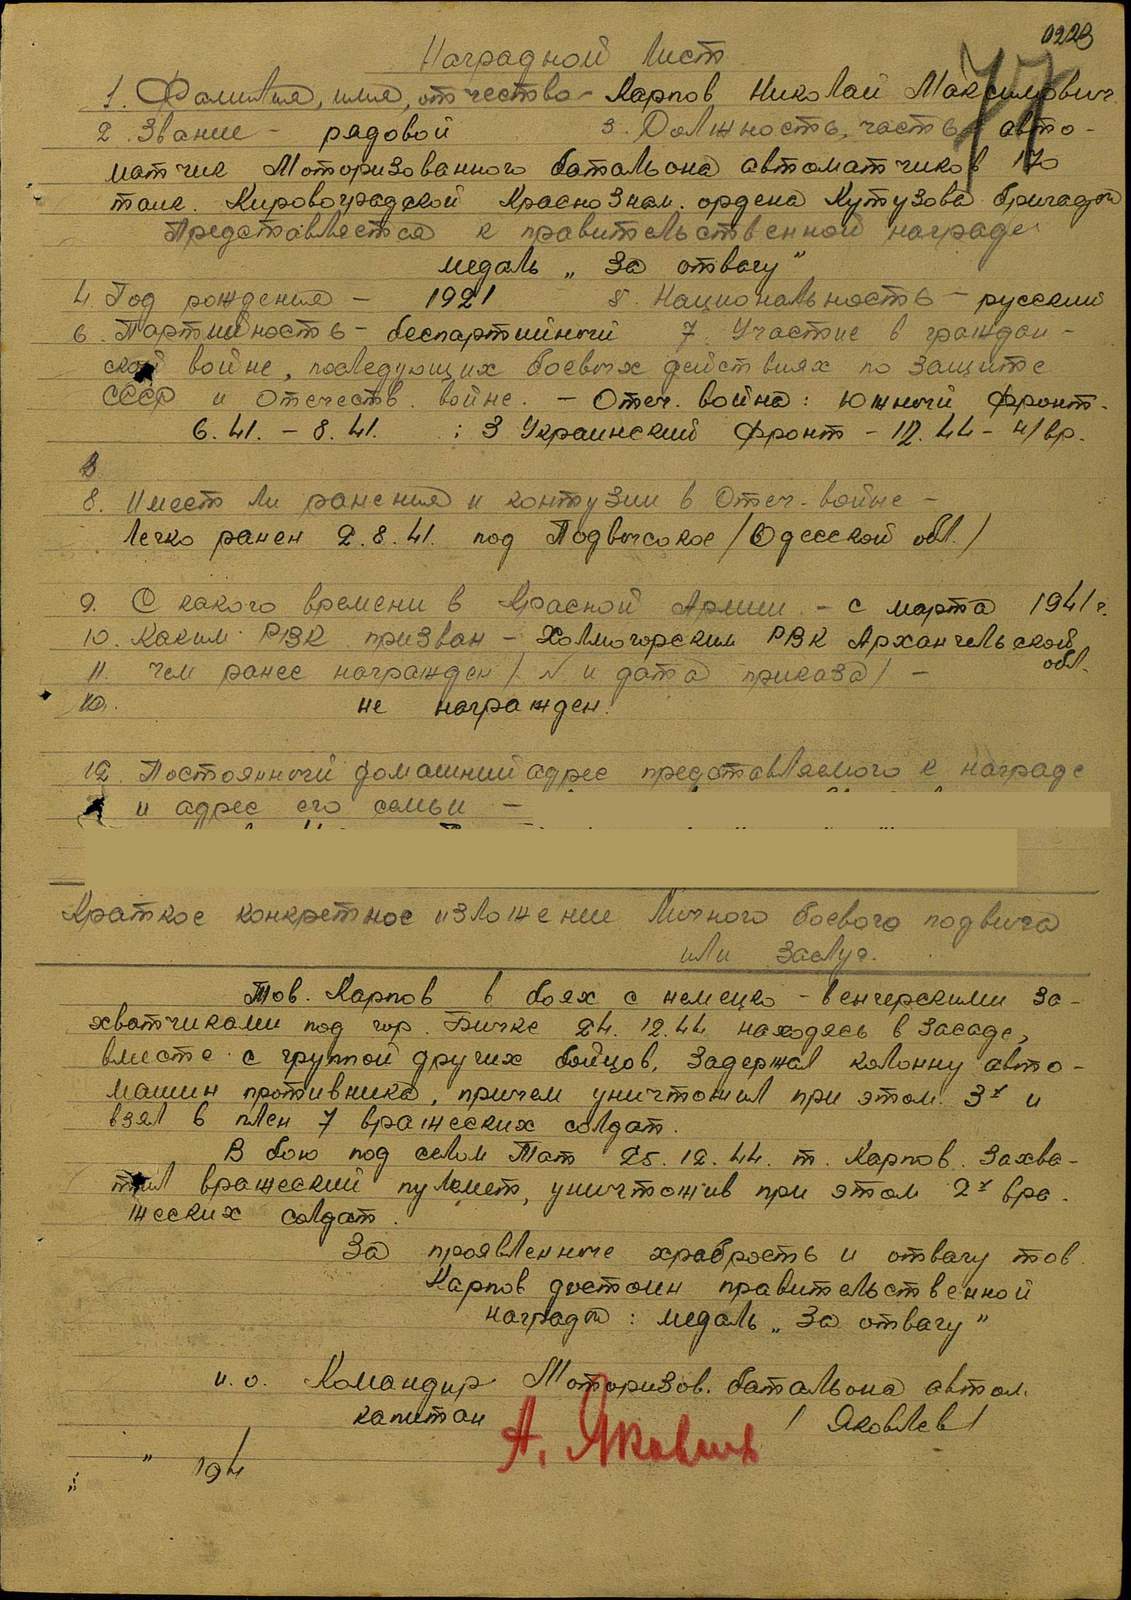 0223
77
Наградной лист
1. Фамилия, имя, отчество – Карпов Николай Максимович
2. Звание – рядовой 3. Должность, часть – авто-
матчик Моторизованного батальона автоматчиков 170
танк. Кировоградской Краснознам. ордена Кутузова бригады
Представляется к правительственной награде
медаль „За отвагу"
4. Год рождения – 1921 5. Национальность – русский
6. Партийность – беспартийный 7. Участие в граждан-
ской войне, последующих боевых действиях по защите
СССР и Отечеств. войне. – Отеч. война: Южный фронт-
6.41. – 8.41. ; 3 Украинский фронт – 12.44 – н/вр.
8. Имеет ли ранения и контузии в Отеч. войне –
легко ранен 2.8.41. под Подвысокое /Одесской обл./
9. С какого времени в Красной Армии – с марта 1941 г.
10. Каким РВК призван – Холмогорским РВК Архангельской
обл.
11. Чем ранее награжден /№ и дата приказа/ –
не награжден.
12. Постоянный домашний адрес представляемого к награде
и адрес его семьи –
Краткое конкретное изложение личного боевого подвига
или заслуг.
Тов. Карпов в боях с немецко-венгерскими за-
хватчиками под гор. Бичке 24.12.44 находясь в засаде,
вместе с группой других бойцов, задержал колонну авто-
машин противника, причем уничтожил при этом 3х и
взял в плен 7 вражеских солдат.
В бою под селом Тат 25.12.44. т. Карпов захва-
тил вражеский пулемет, уничтожив при этом 2х вра-
жеских солдат.
За проявленные храбрость и отвагу тов.
Карпов достоин правительственной
награды: медаль „За отвагу"
и.о. Командир Моторизов. батальона автом.
капитан А. Яковлев /Яковлев/
" 194